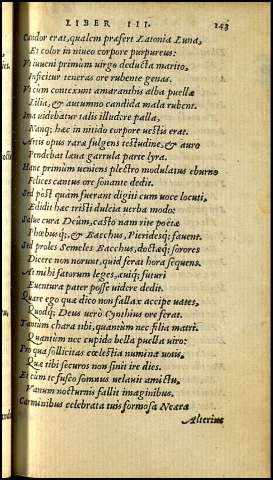 LIBER III. 143
Candor erat, qualem præfert Latonia Luna,
Et color in niueo corpore purpureus:
Vt iuueni primùm uirgo deducta marito,
Inficitur teneras ore rubente genas.
Vt cùm contexunt amaranthis alba puellæ
Lilia, & autumno candida mala rubent.
Ima uidebatur talis illudere palla,
Nanq; hæc in nitido corpore uestis erat.
Artis opus raræ fulgens testudine, & auro
Pendebat laua garrula parte lyra.
Hanc primùm ueniens plectro modulatus eburno
Felices cantus ore sonante dedit.
Sed pòst quàm fuerant digiti cum uoce locuti,
Edidit hæc tristi dulcia uerba modo:
Salue cura Deûm, casto nam rite poëtæ
Phœbusq;, & Bacchus, Pieridesq; fauent.
Sed proles Semeles Bacchus, doctæq; sorores
Dicere non norunt, quid ferat hora sequens.
At mihi fatorum leges, æuiq; futuri
Euentura pater posse uidere dedit.
Quare ego quæ dico non fallax accipe uates,
Quodq; Deus uerò Cynthius ore ferat.
Tantum chara tibi, quantum nec filia matri,
Quantum nec cupido bella puella uiro:
Pro qua sollicitas cœlestia numina uotis,
Quæ tibi securos non sinit ire dies.
Et cùm te fusco somnus uelauit amictu,
Vanum nocturnis fallit imaginibus.
Carminibus celebrata tuis formosa Neæra
Alterius